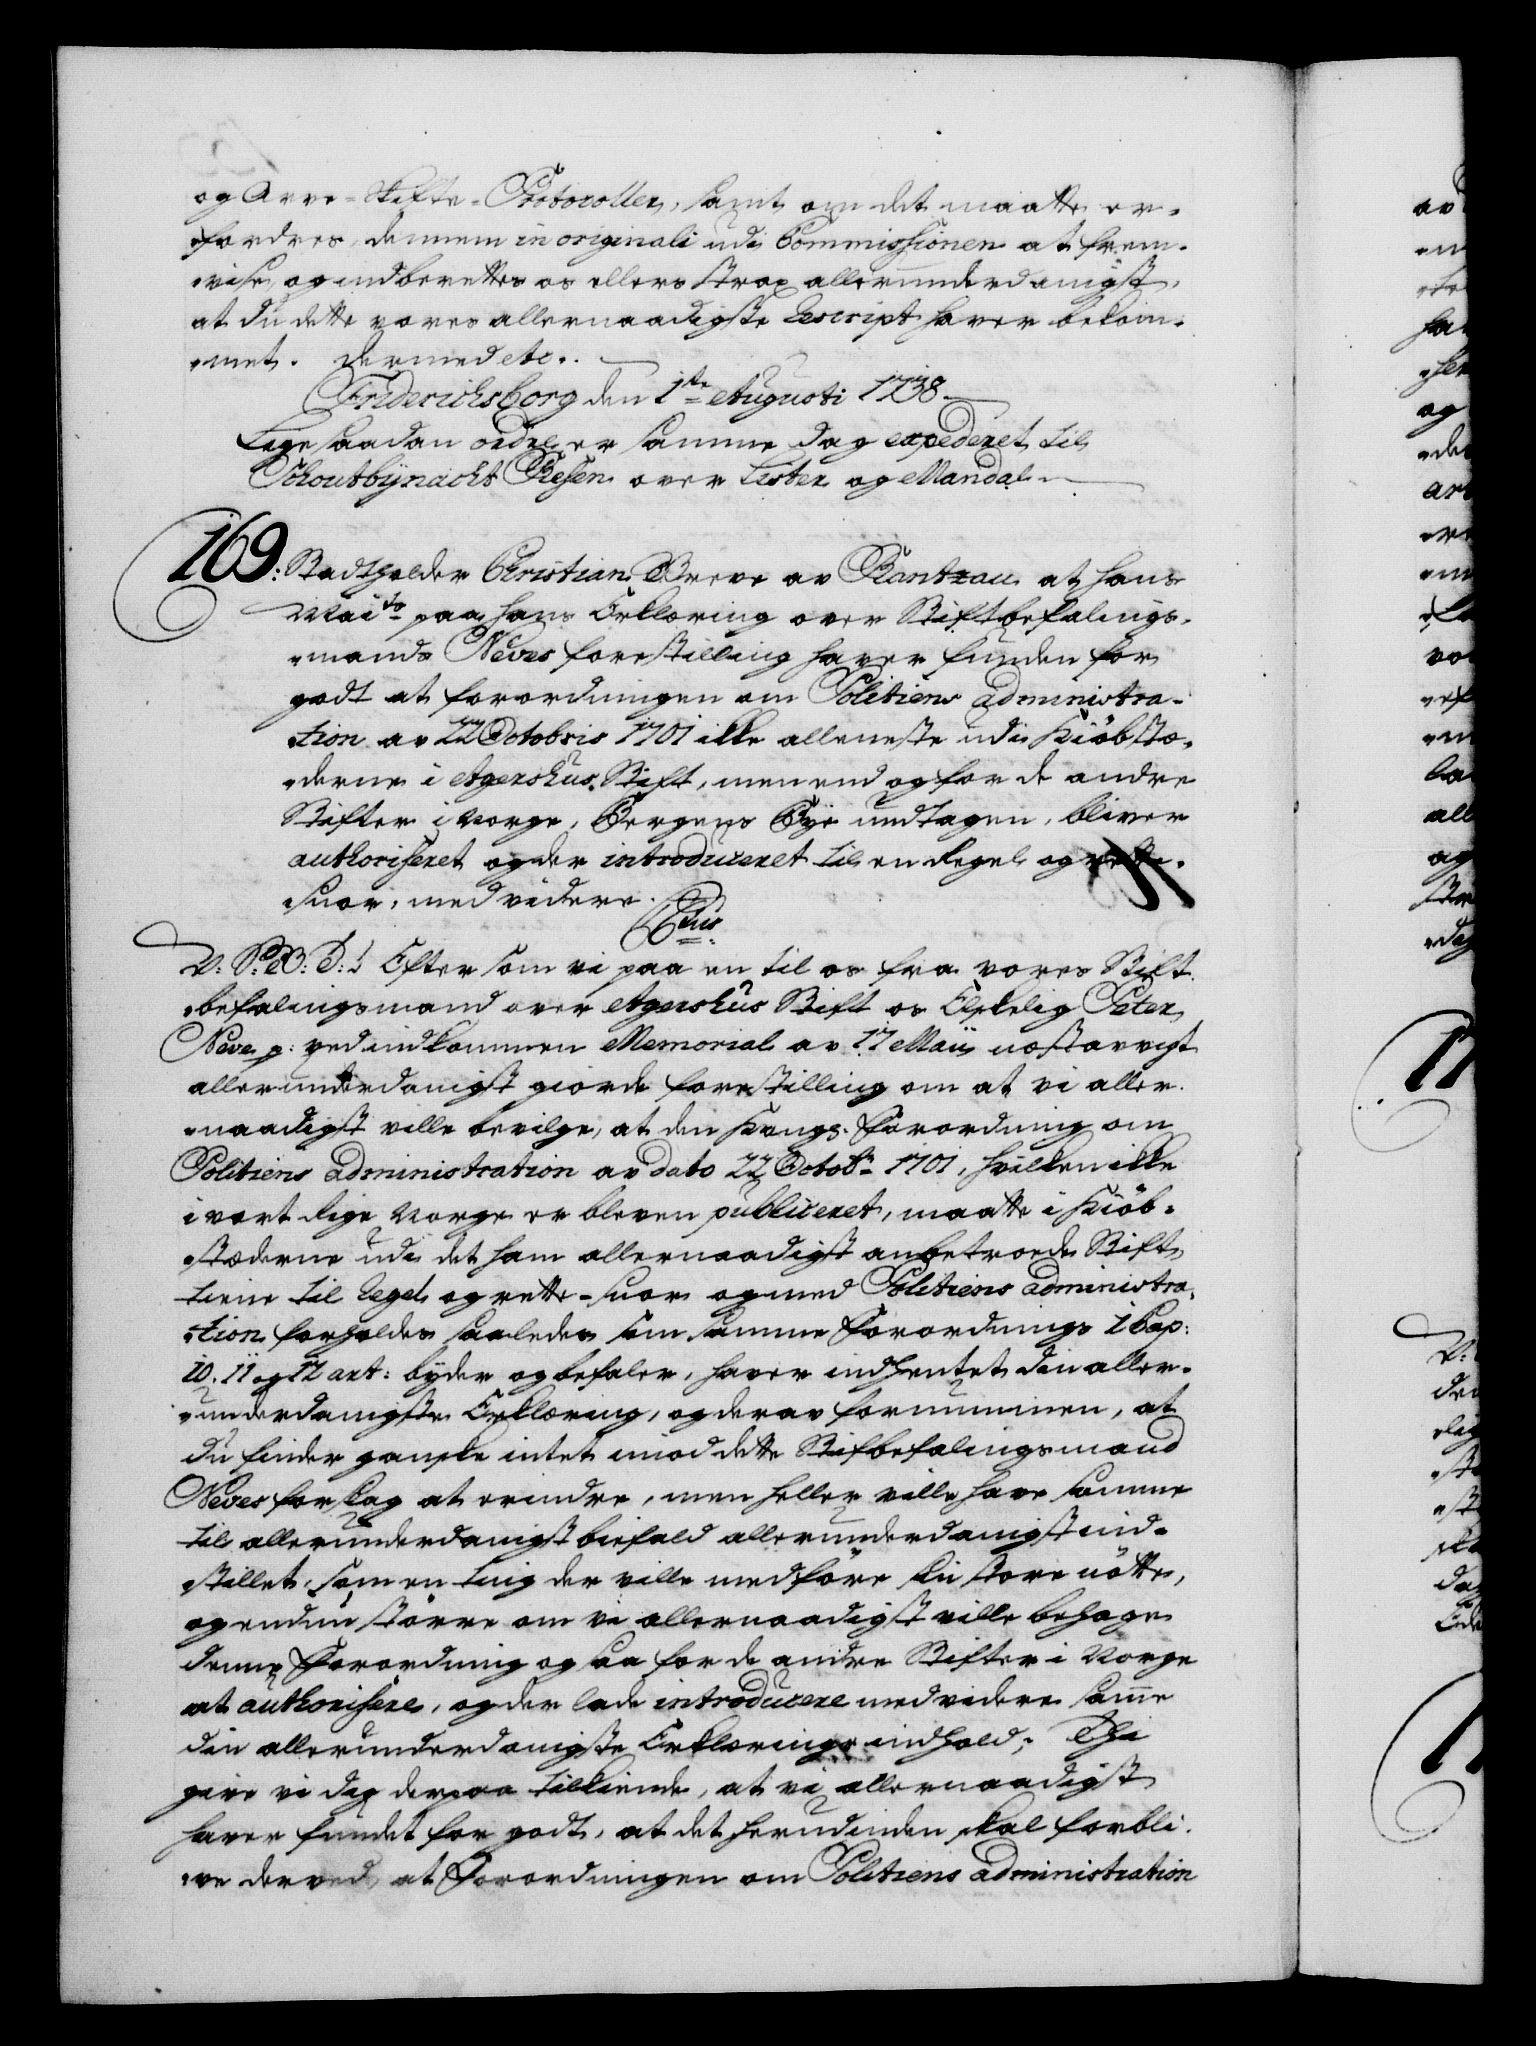 og Arve-Skifte-Protocoller, samt om det maatte er-
fordres, dennem in originali udi Commissionen at frem-
vise, og indberettes os ellers strax allerunderdanigst,
at du dette vores allernaadigste Rescript haver bekom-
met. Dermed etc.
Friderichsborg den 1ste Augusti 1738.
Lige saadan ordre er samme dag expederet til
Schoutbÿnacht Riesen over Lister og Mandal.
169: Stadtholder Christian Greve av Rantzau at hans
Maits paa hans Erklæring over Stiftbefalings-
mands Neves forestilling haver funden for
godt at forordningen om Politiens administra-
tion av 22 Octobris 1701 ikke alleneste udi Kiöbstæ-
derne i Agershus Stift, men end og for de andre
Stifter i Norge, Bergens Bÿe undtagen, bliver
authoriseret og der introduceret til en Regel og rette-
snor, med videre.
C6tus
V: S: G: T: Eftersom vi paa en til os fra vores Stift-
befalingsmand over Agershus Stift os Elskelig Peter
Neve p: ved indkommen Memorial av 17 Maii næstavvigt
allerunderdanigst giorde forestilling om at vi aller-
naadigst ville bevilge, at den Kongs: Forordning om
Politiens administration av dato 22 Octobr 1701, hvilken ikke
i vort Rige Norge er bleven publiceret, maatte i Kiöb-
stæderne udi det ham allernaadigst anbetroede Stift
tiene til Regel og rette-snor og med Politiens administra-
tion forholdes saaledes som samme Forordnings 1 Cap:
10. 11 og 12 art: byder og befaler, haver indhentet din aller-
underdanigste Erklæring, og derav fornummen, at
du finder ganske intet imod dette Stifbefalingsmand
Neves forslag at erindre, men heller ville have samme
til allerunderdanigst biefald allerunderdanigst ind-
stillet, som en ting der ville medföre sin store nötte,
og endnu större om vi allernaadigst ville behage
denne Forordning og saa for de andre Stifter i Norge
at authorisere, og der lade introducere med videre samme
din allerunderdanigste Erklærings indhold; Thi
give vi dig derpaa tilkiende, at vi allernaadigst
haver fundet for godt, at det herudinden skal forbli-
ve derved, at Forordningen om Politiens administration